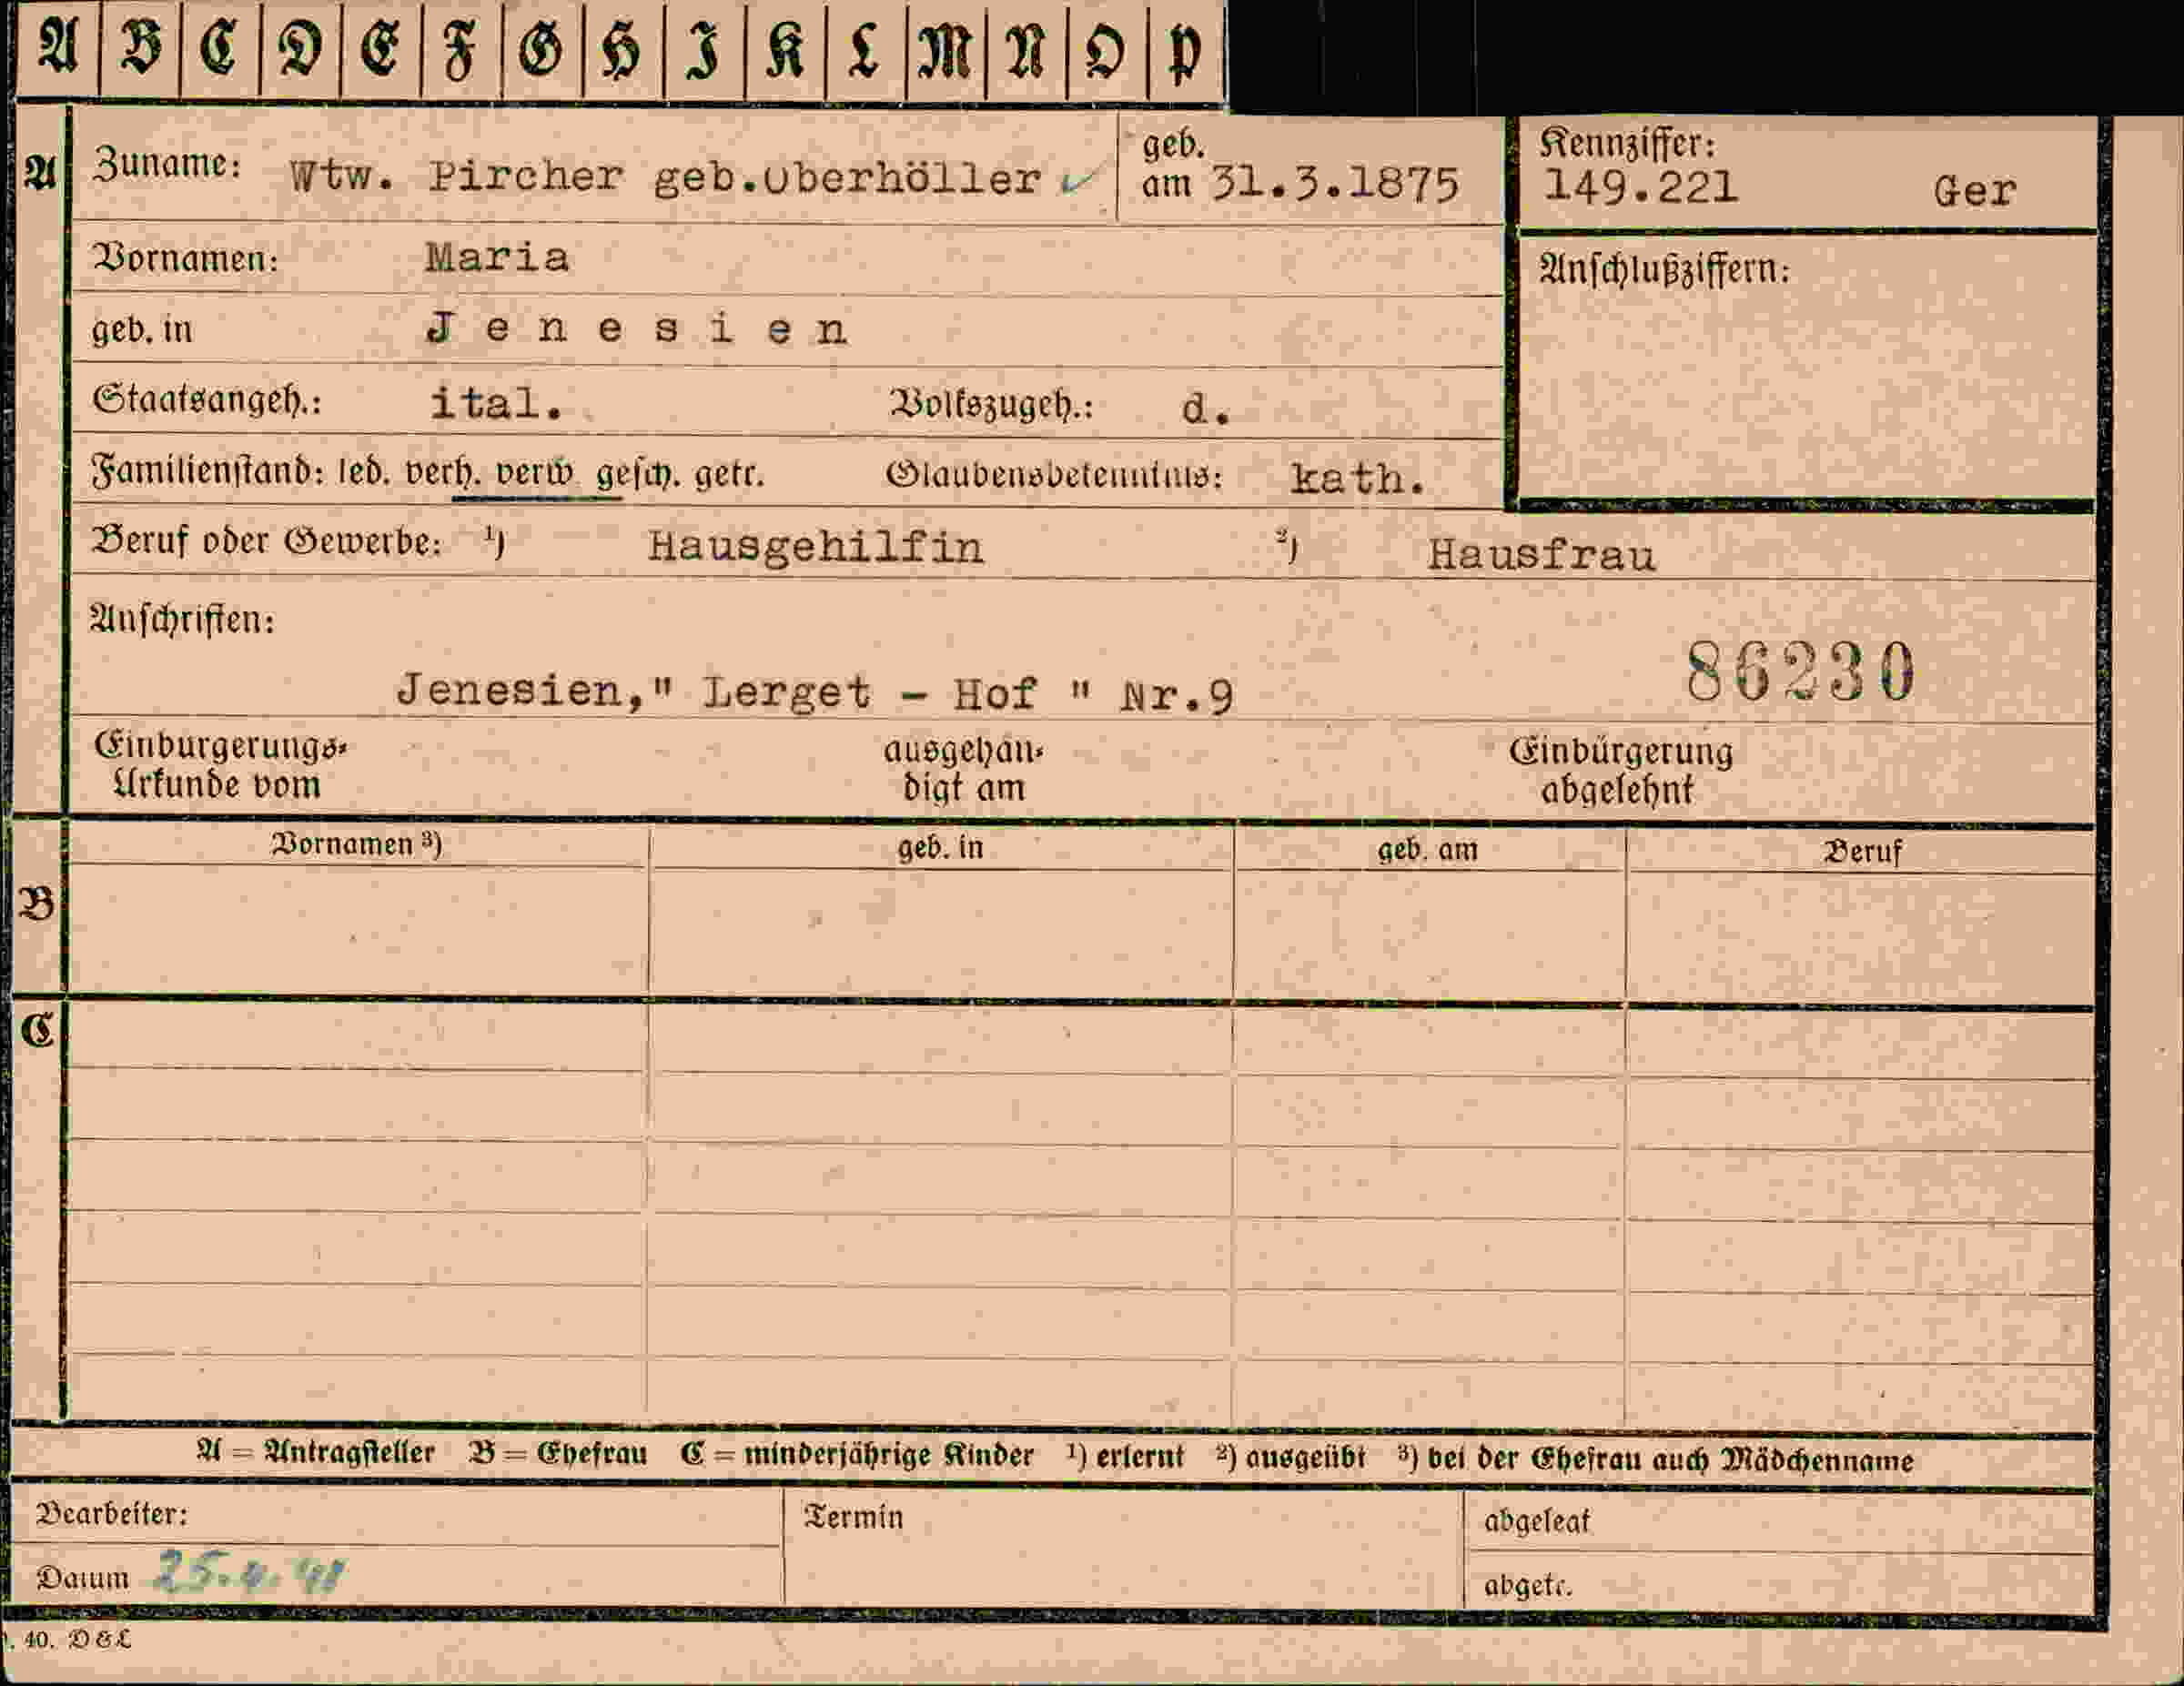 A B C D E F G H I K L M N O P
A Zuname: Wtw. Pircher geb.Oberhöller geb. am 31.3.1875 Kennziffer: 149.221 Ger
Vornamen: Maria Anschlußziffern:
geb. in Jenesien
Staatsangeh.: ital. Volkszugeh.: d.
Familienstand: led. verh. verw. gesch. getr. Glaubensbekenntnis: kath.
Beruf oder Gewerbe: ¹) Hausgehilfin ²) Hausfrau
Anschriften:
Jenesien," Lerget - Hof " Nr.9 86230
Einbürgerungs- ausgehän- Einbürgerung
Urkunde vom digt am abgelehnt
Vornamen ³) geb. in geb. am Beruf
B
C
A = Antragsteller B = Ehefrau C = minderjährige Kinder ¹) erlernt ²) ausgeübt ³) bei der Ehefrau auch Mädchenname
Bearbeiter: Termin abgelegt
Datum 25.4.41 abgetr.
. 40. D & L